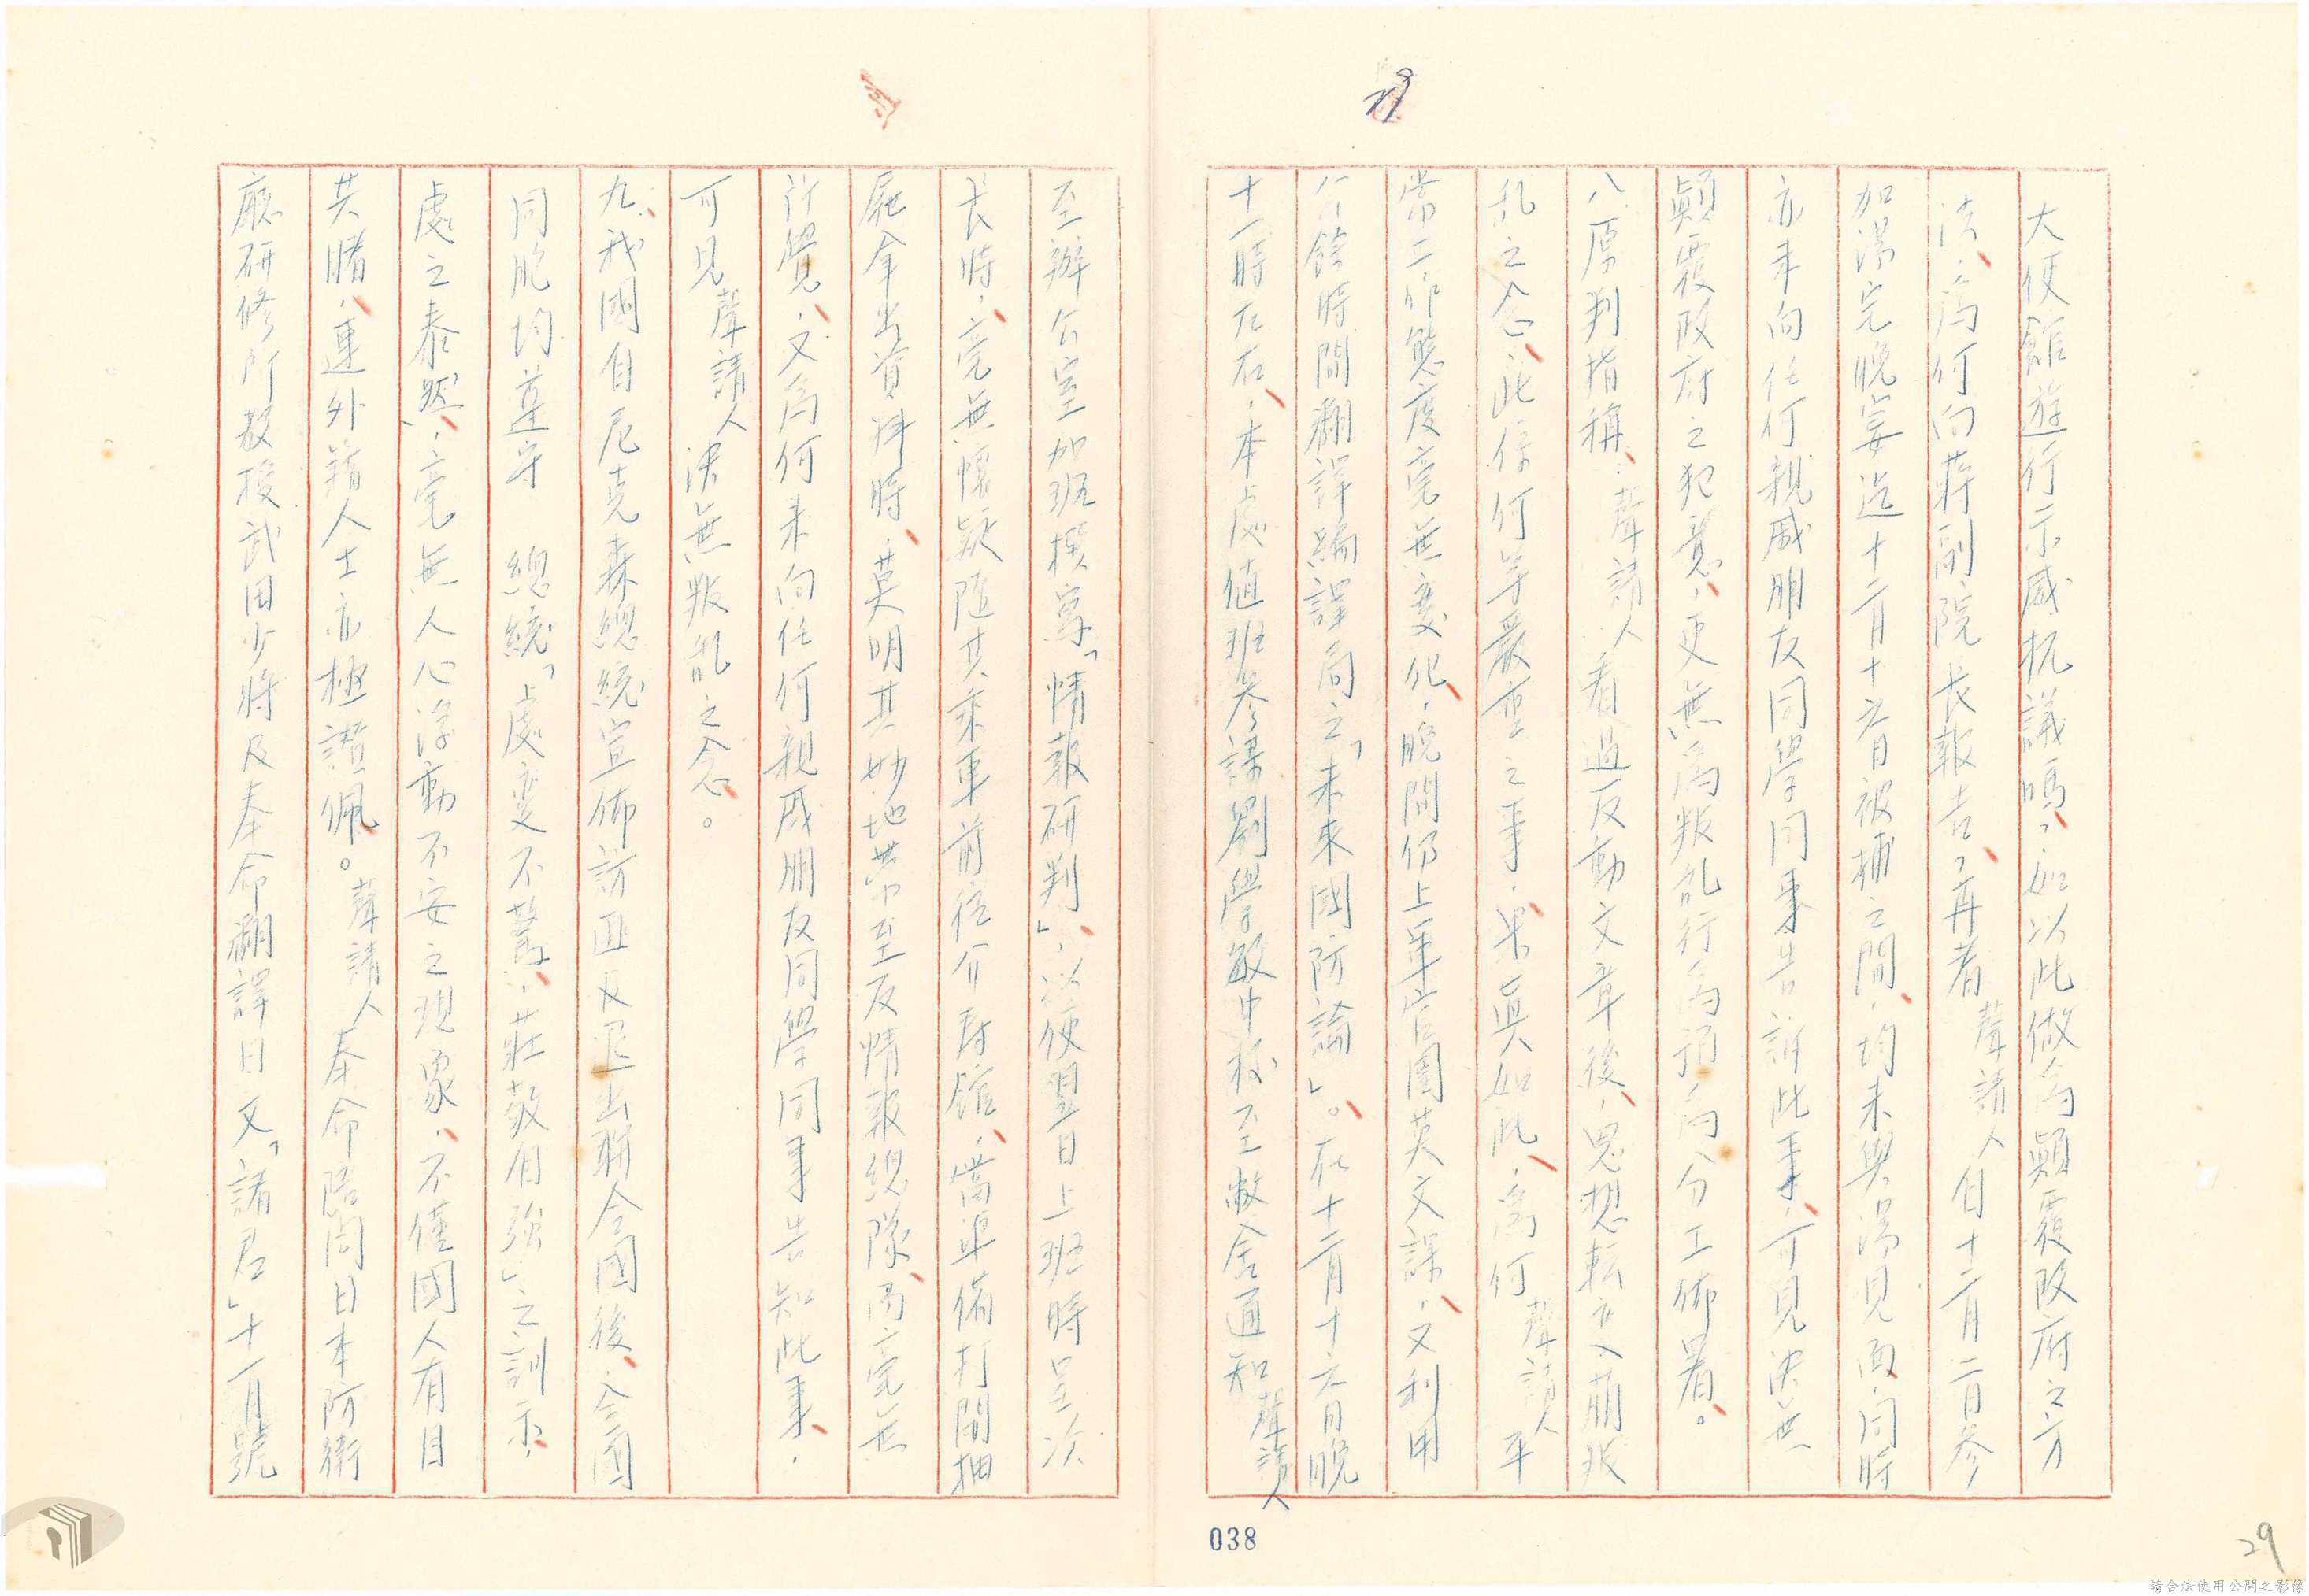 29
大使館遊行示威抗議嗎，如以此做為顛覆政府之方
法，為何向蔣副院長報告，再者聲請人自十二月二日參
加湯完晚宴迄十二月十六日被補之間，均未與湯見面，同時
亦未向任何親戚朋友同學同事告訴此事，可見決無
顛覆政府之犯意，更無為叛乱行為
八、原判指稱：聲請人看過反動文章後，思想転變，萌叛
乱之念，此係何等嚴重之事，果真如此，為何聲請人平
常工作態度毫無變化，晚間仍上軍官團英文課，又利用
公餘時間翻譯編譯局之「未來國防論」。在十二月十六日晚
十一時左右，本處值班參謀劉學敏中校至敝舍通知聲請人
至辦公室加班撰寫「情報研判」，以便翌日上班時呈次
長時，毫無懷疑隨其乘車前往介壽館，當準備打開抽
屜拿出資料時，莫明其妙地帶至反情報總隊，尚毫無
所覺，又為何未向任何親戚朋友同學同事告知此事，
可見聲請人決無叛乱之念。
九、我國自尼克森總統宣佈訪匪及退出聯合國後，全國
同胞均遵守　總統「處變不驚，莊敬自強」之訓示，
處之泰然，毫無人心浮動不安之現象，不僅國人有目
共睹，連外籍人士亦極讚佩。聲請人奉命陪同日本防衛
廳研修所教授武田少將及奉命翻譯日文「諸君」十一月號
038
29
請合法使用公開之影像